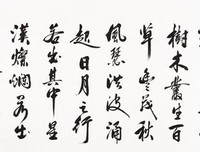 樹木叢生百
草豐茂秋
風蕭瑟洪波涌
起日月之行
若出其中星
漢燦爛若出